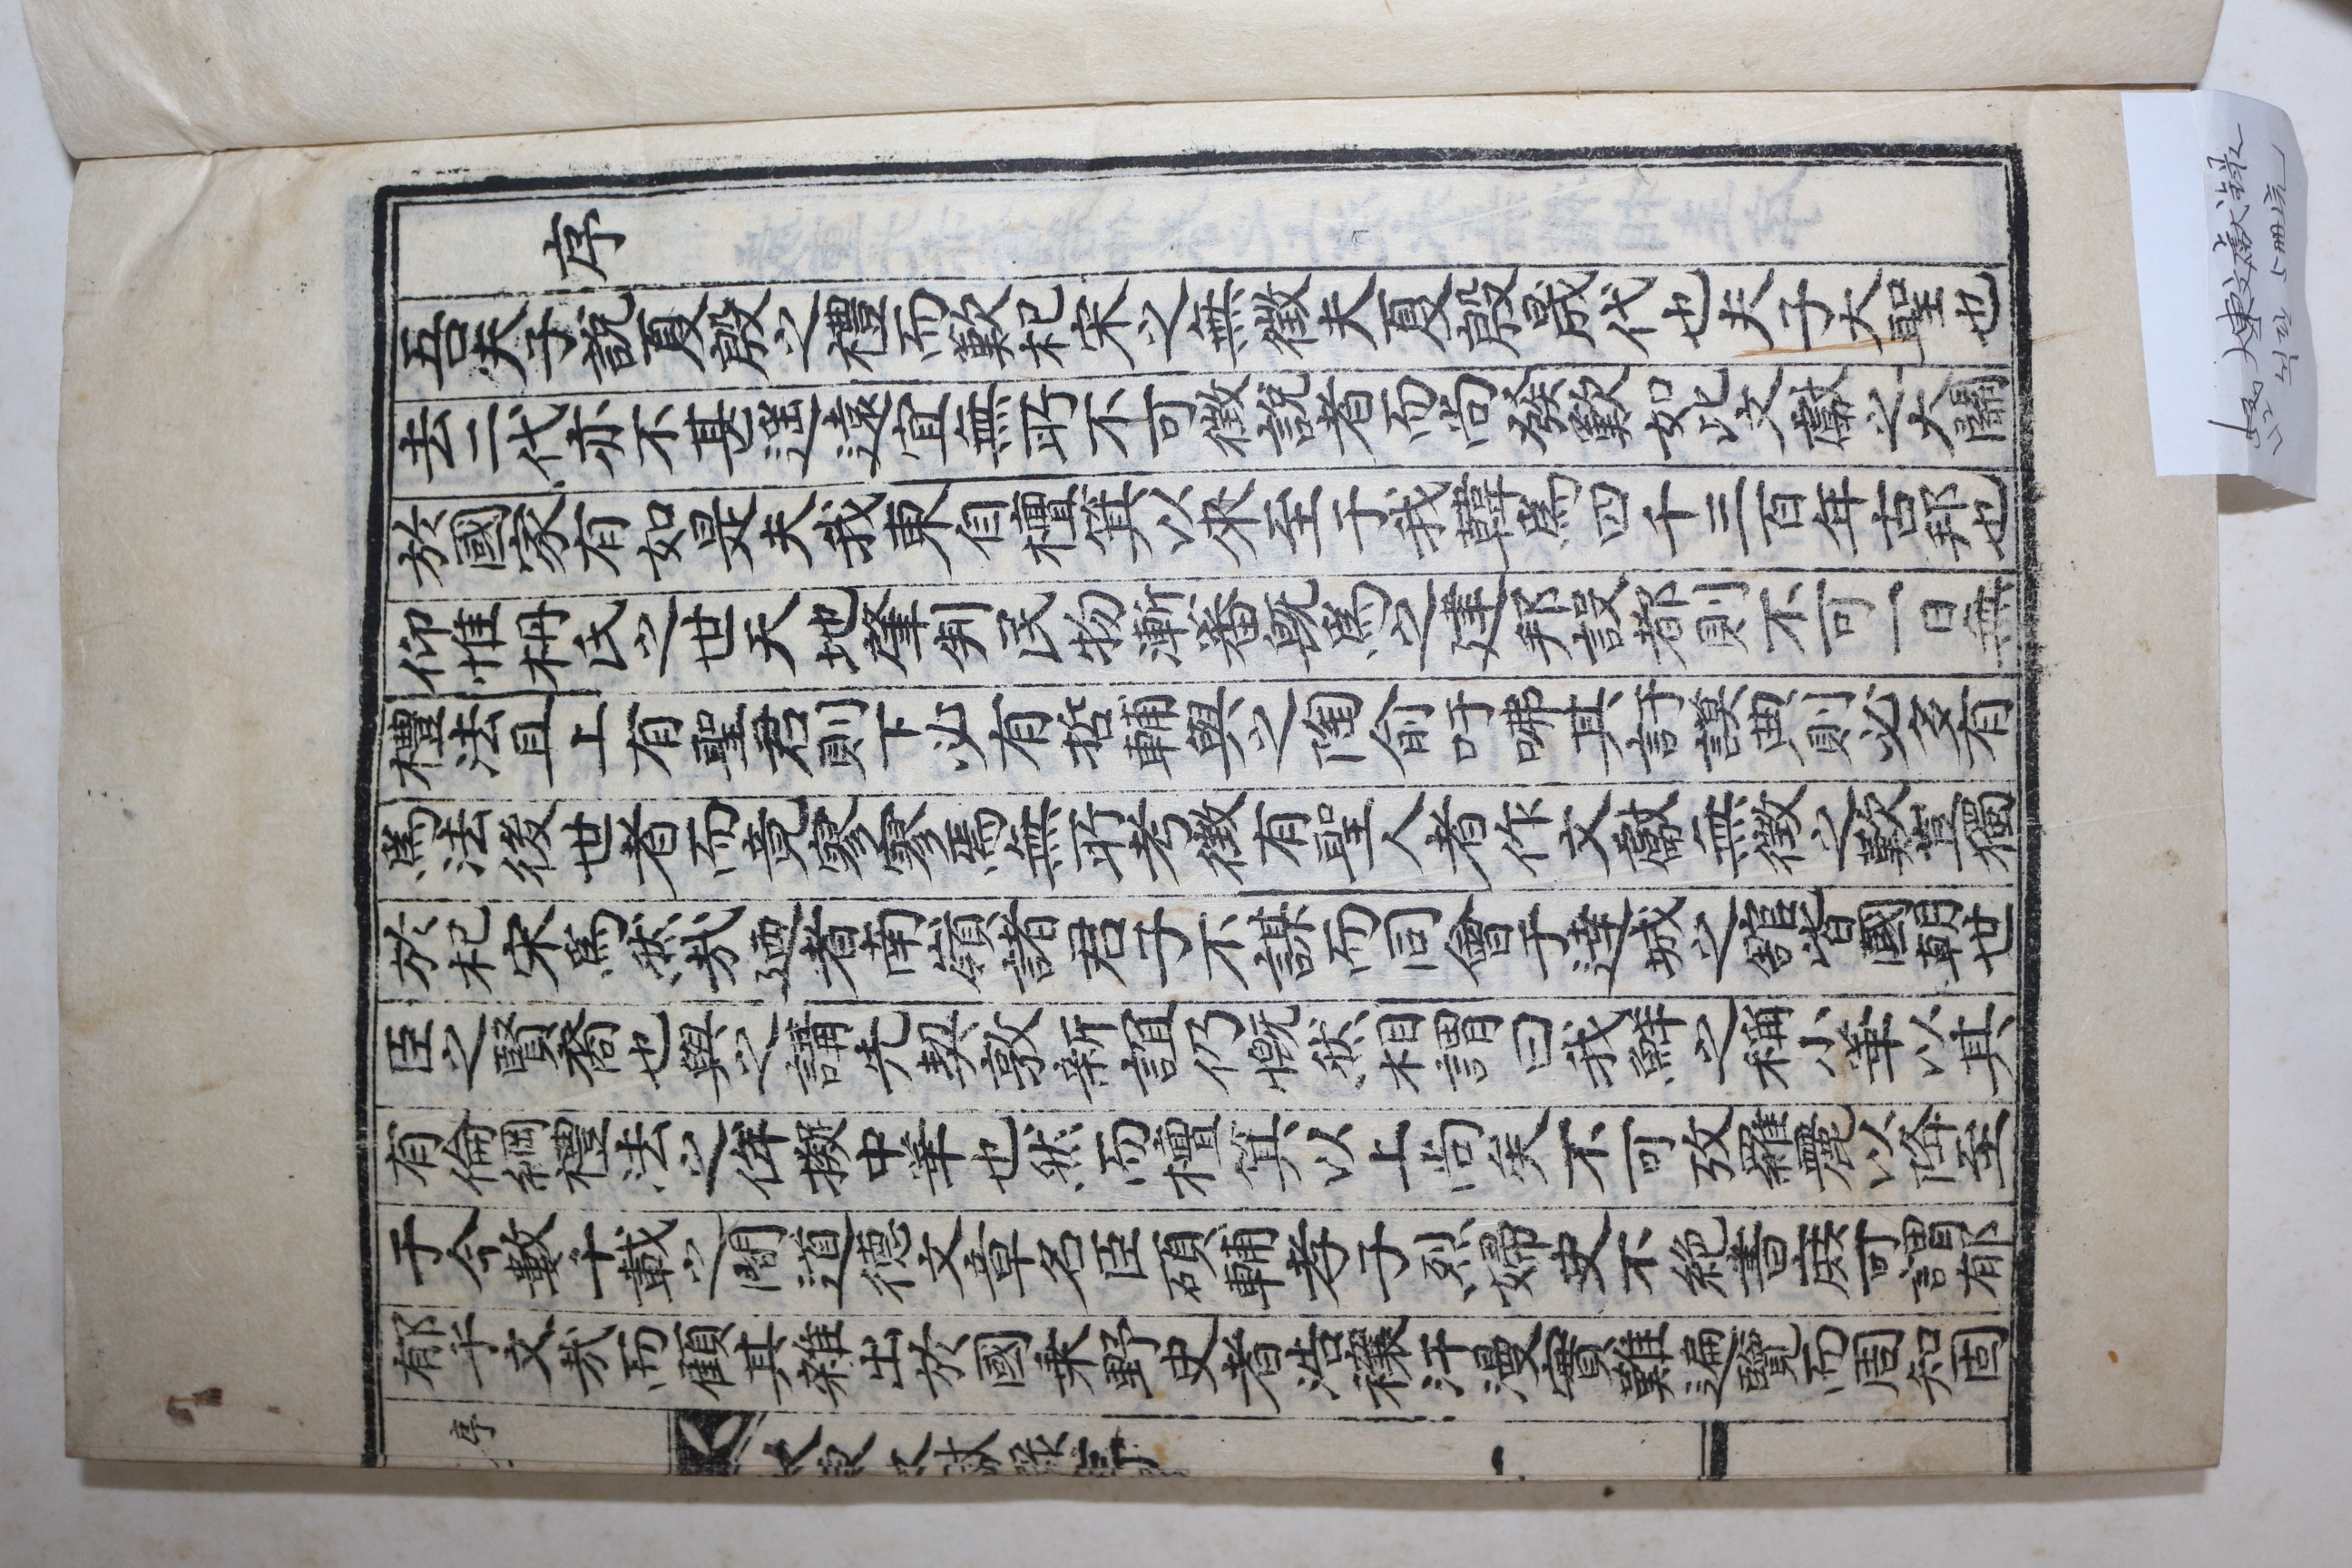 序
吾夫子說夏殷之禮而歎杞宋之無徵夫夏殷晟代也夫子大聖也
去二代亦不甚遠宜無所不可徵說者而尚發歎如此文獻之大關
於國家有如是夫我東自檀箕以來至于我韓爲四千三百年古邦也
仰惟氏之世天地肇判民物漸蕃既爲之建邦設都則不可一日無
禮法且上有聖君則下必有哲輔與之陶俞吁咈其訏謨典則必多有
爲法後世者而竟寥寥焉無所考徵有聖人者作文獻無徵之歎豈獨
於杞宋爲然哉迺者南嶺諸君子不謀而同會于達城之舘皆國朝世
臣之賢裔也與之講先契敦新誼仍慨然相謂曰我鮮之稱小華以其
有倫綱禮法之侔擬中華也然而檀箕以上尚矣不可攷羅麗以降至
于今數千載之間道德文章名臣碩輔孝子烈婦史不絕書庶可謂郁
郁乎文哉而顧其雜出於國乘野史者浩穰汗漫實難遍覽而周知固
序